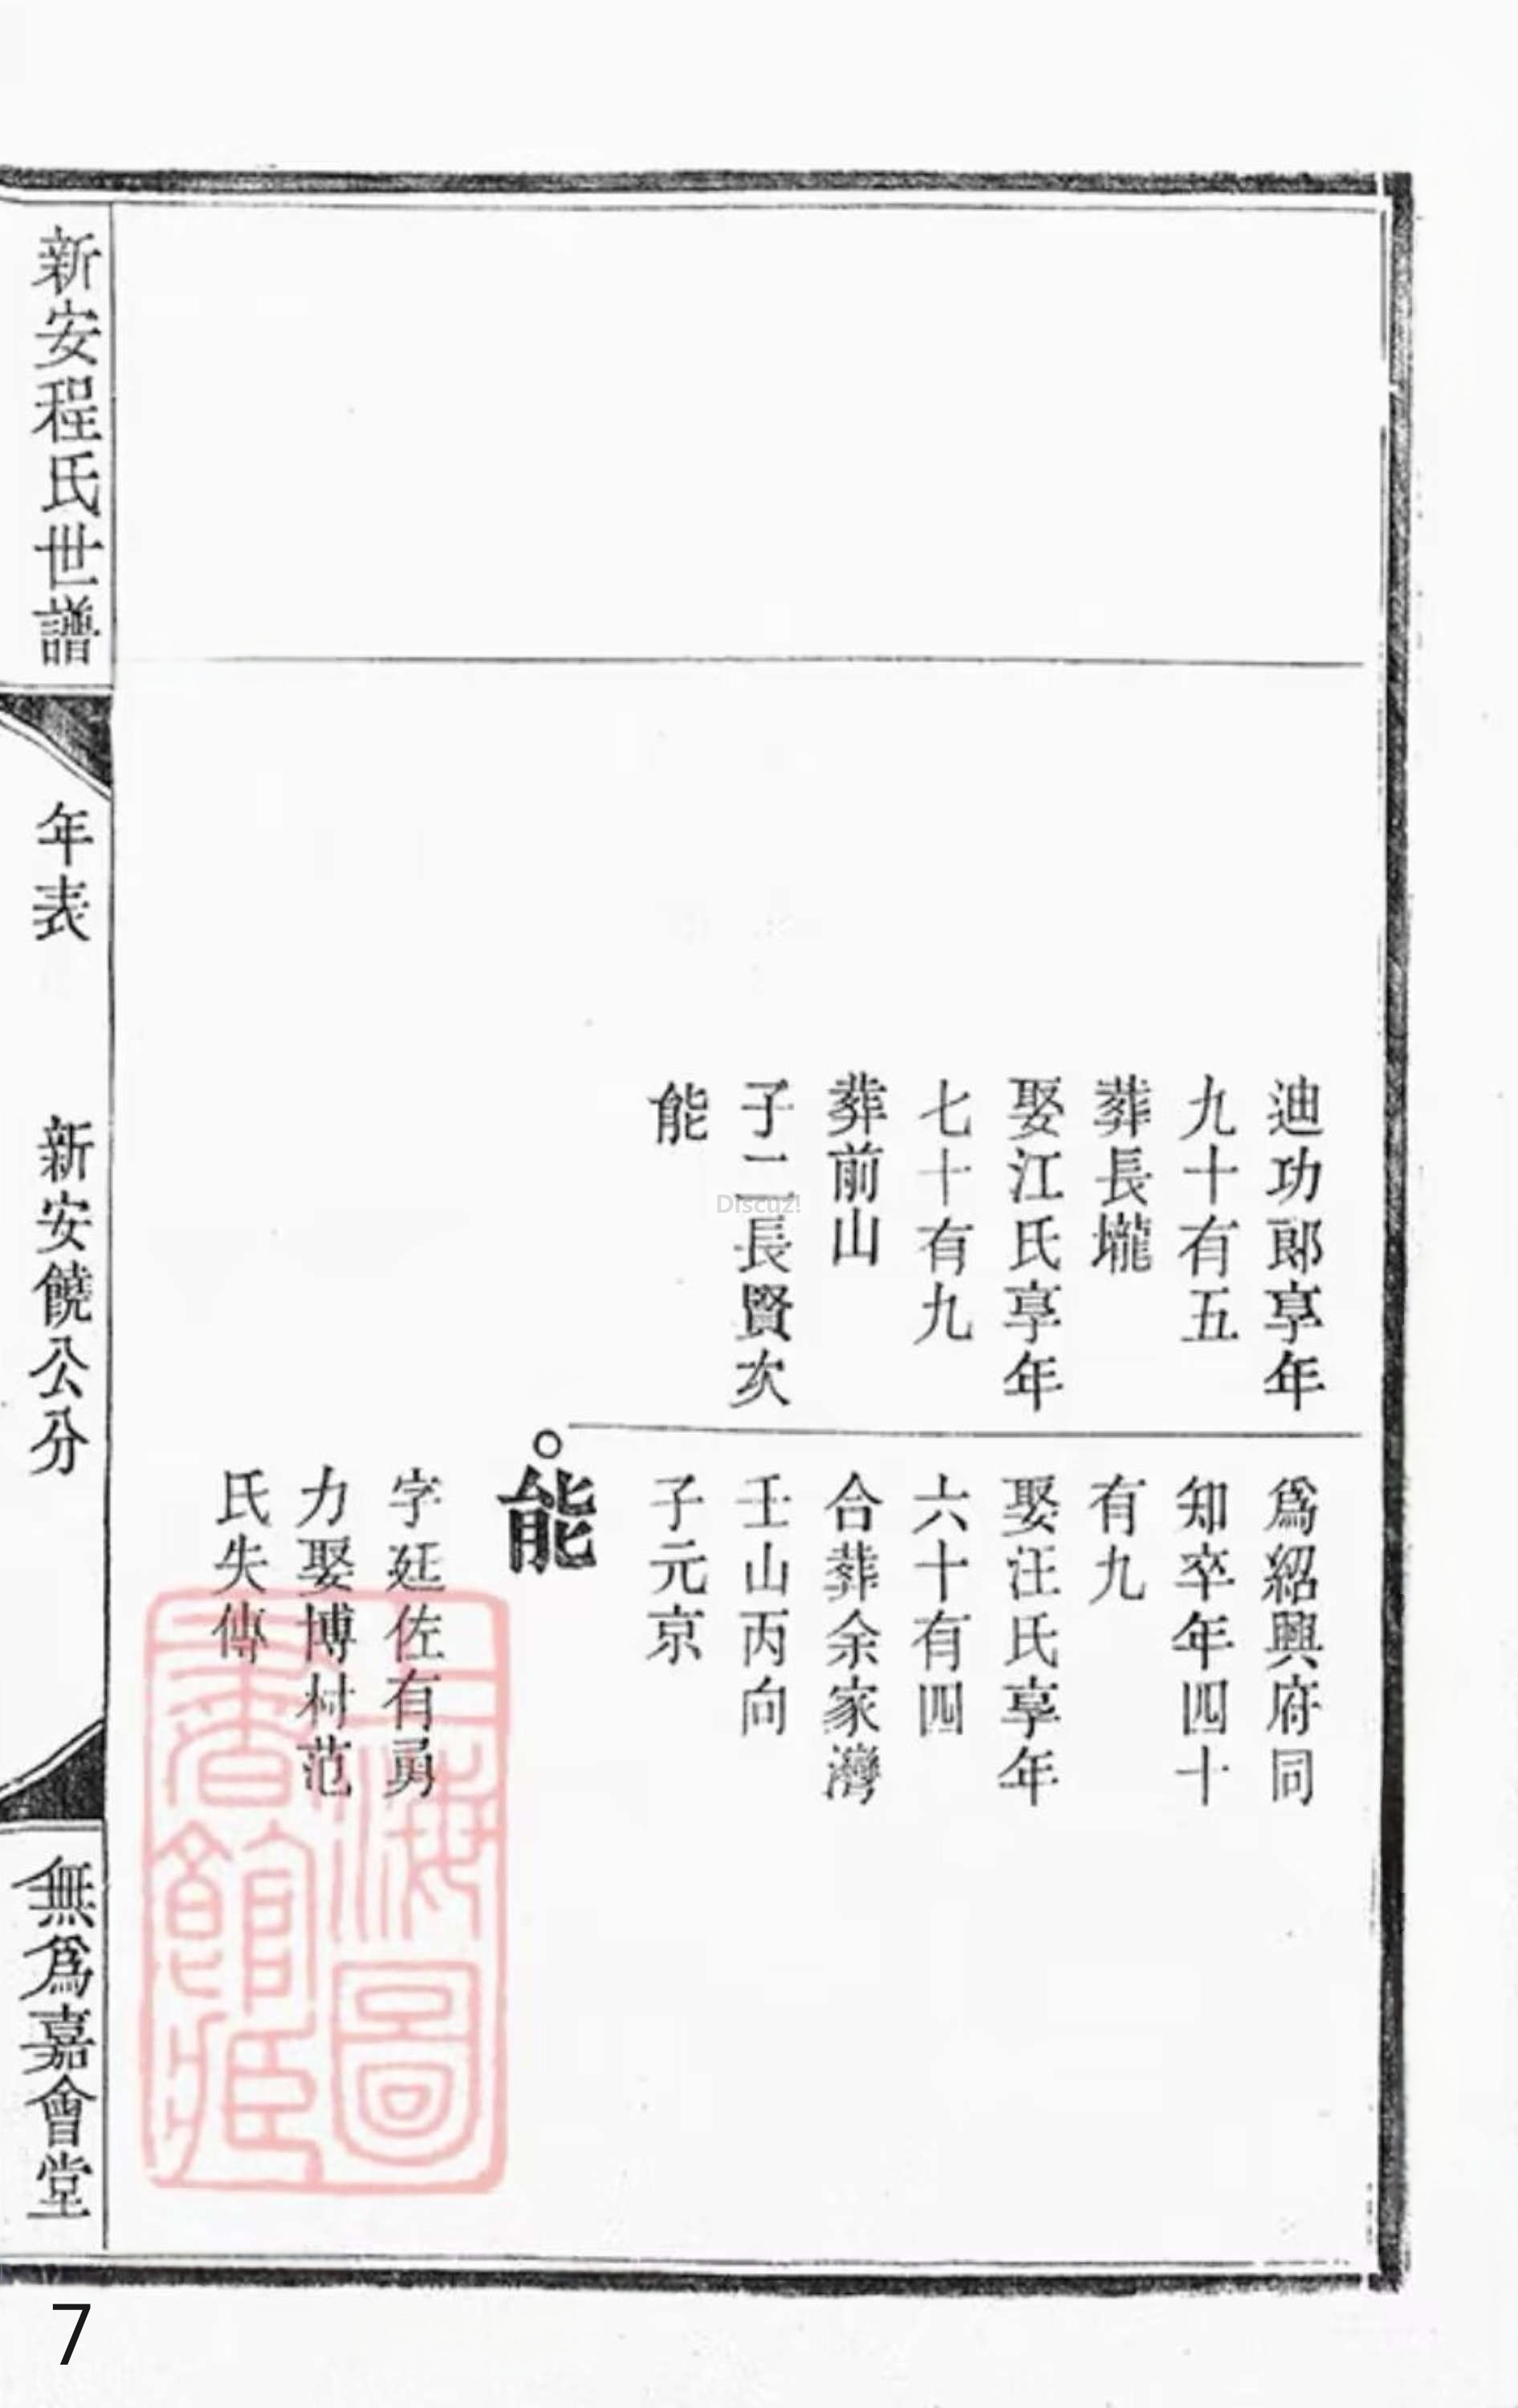 迪功郎享年
九十有五
葬長壠
娶江氏享年
七十有九
葬前山
子二長賢次
能
爲紹興府同
知卒年四十
有九
娶汪氏享年
六十有四
合葬余家灣
壬山丙向
子元京
能
字廷佐有勇
力娶博村范
氏失傳
新安程氏世譜
年表
新安饒公分
無爲嘉會堂
上海圖
書館藏
Discuz!
7